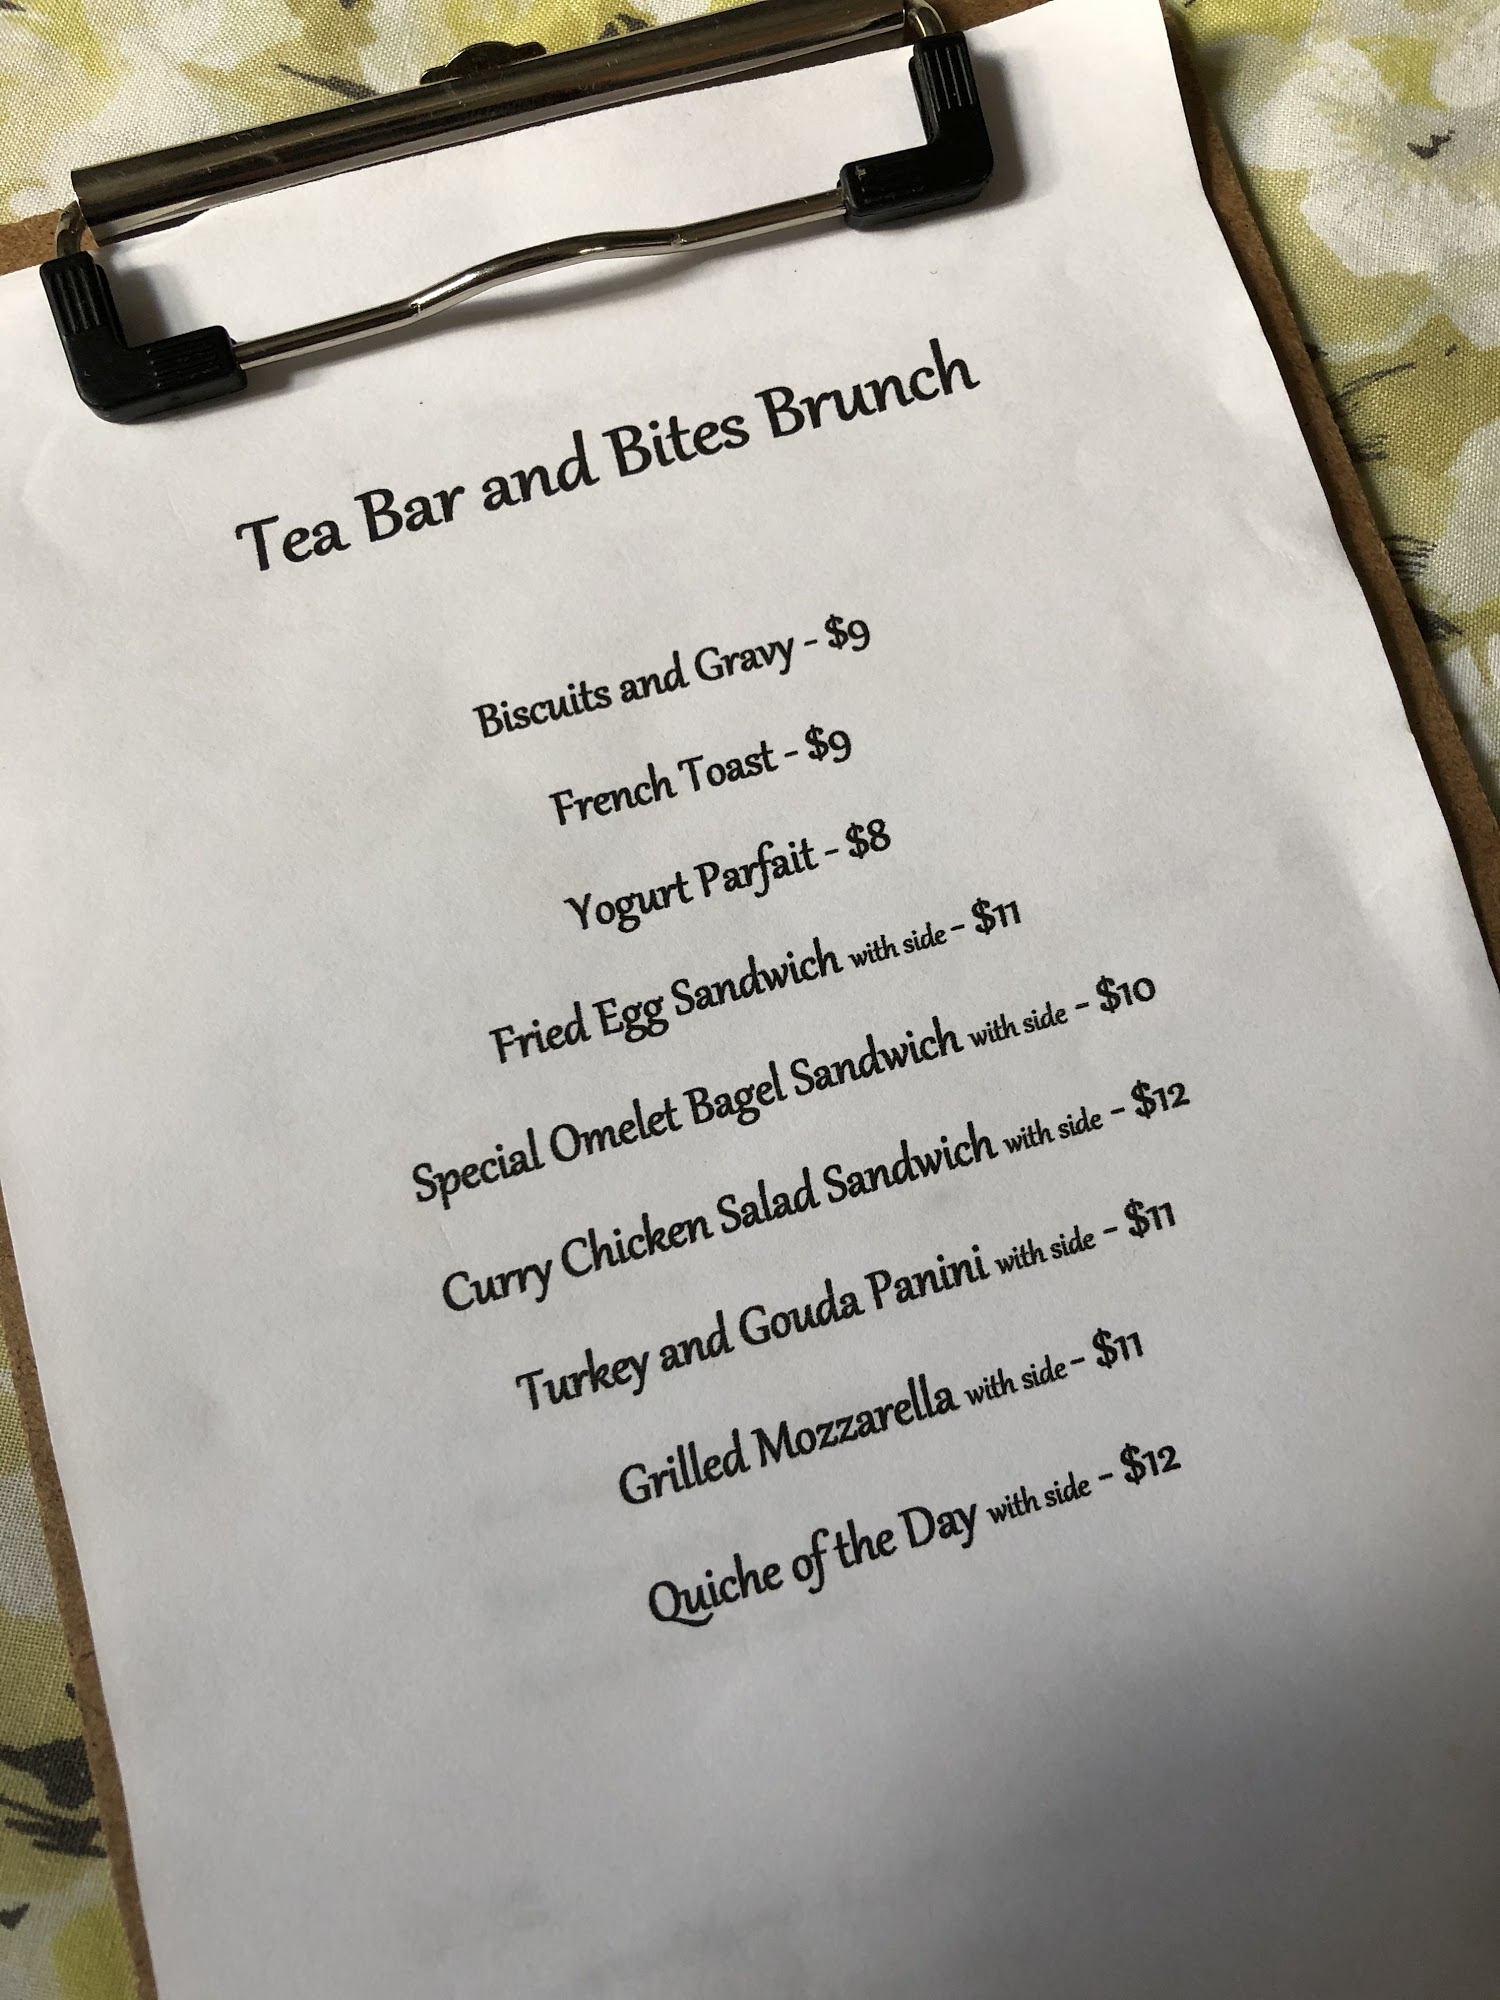 Tea Bar and Bites Brunch
Biscuits and Gravy - $9
French Toast - $9
Yogurt Parfait - $8
Fried Egg Sandwich with side - $11
Special Omelet Bagel Sandwich with side - $10
Curry Chicken Salad Sandwich with side - $12
Turkey and Gouda Panini with side - $11
Grilled Mozzarella with side - $11
Quiche of the Day with side - $12